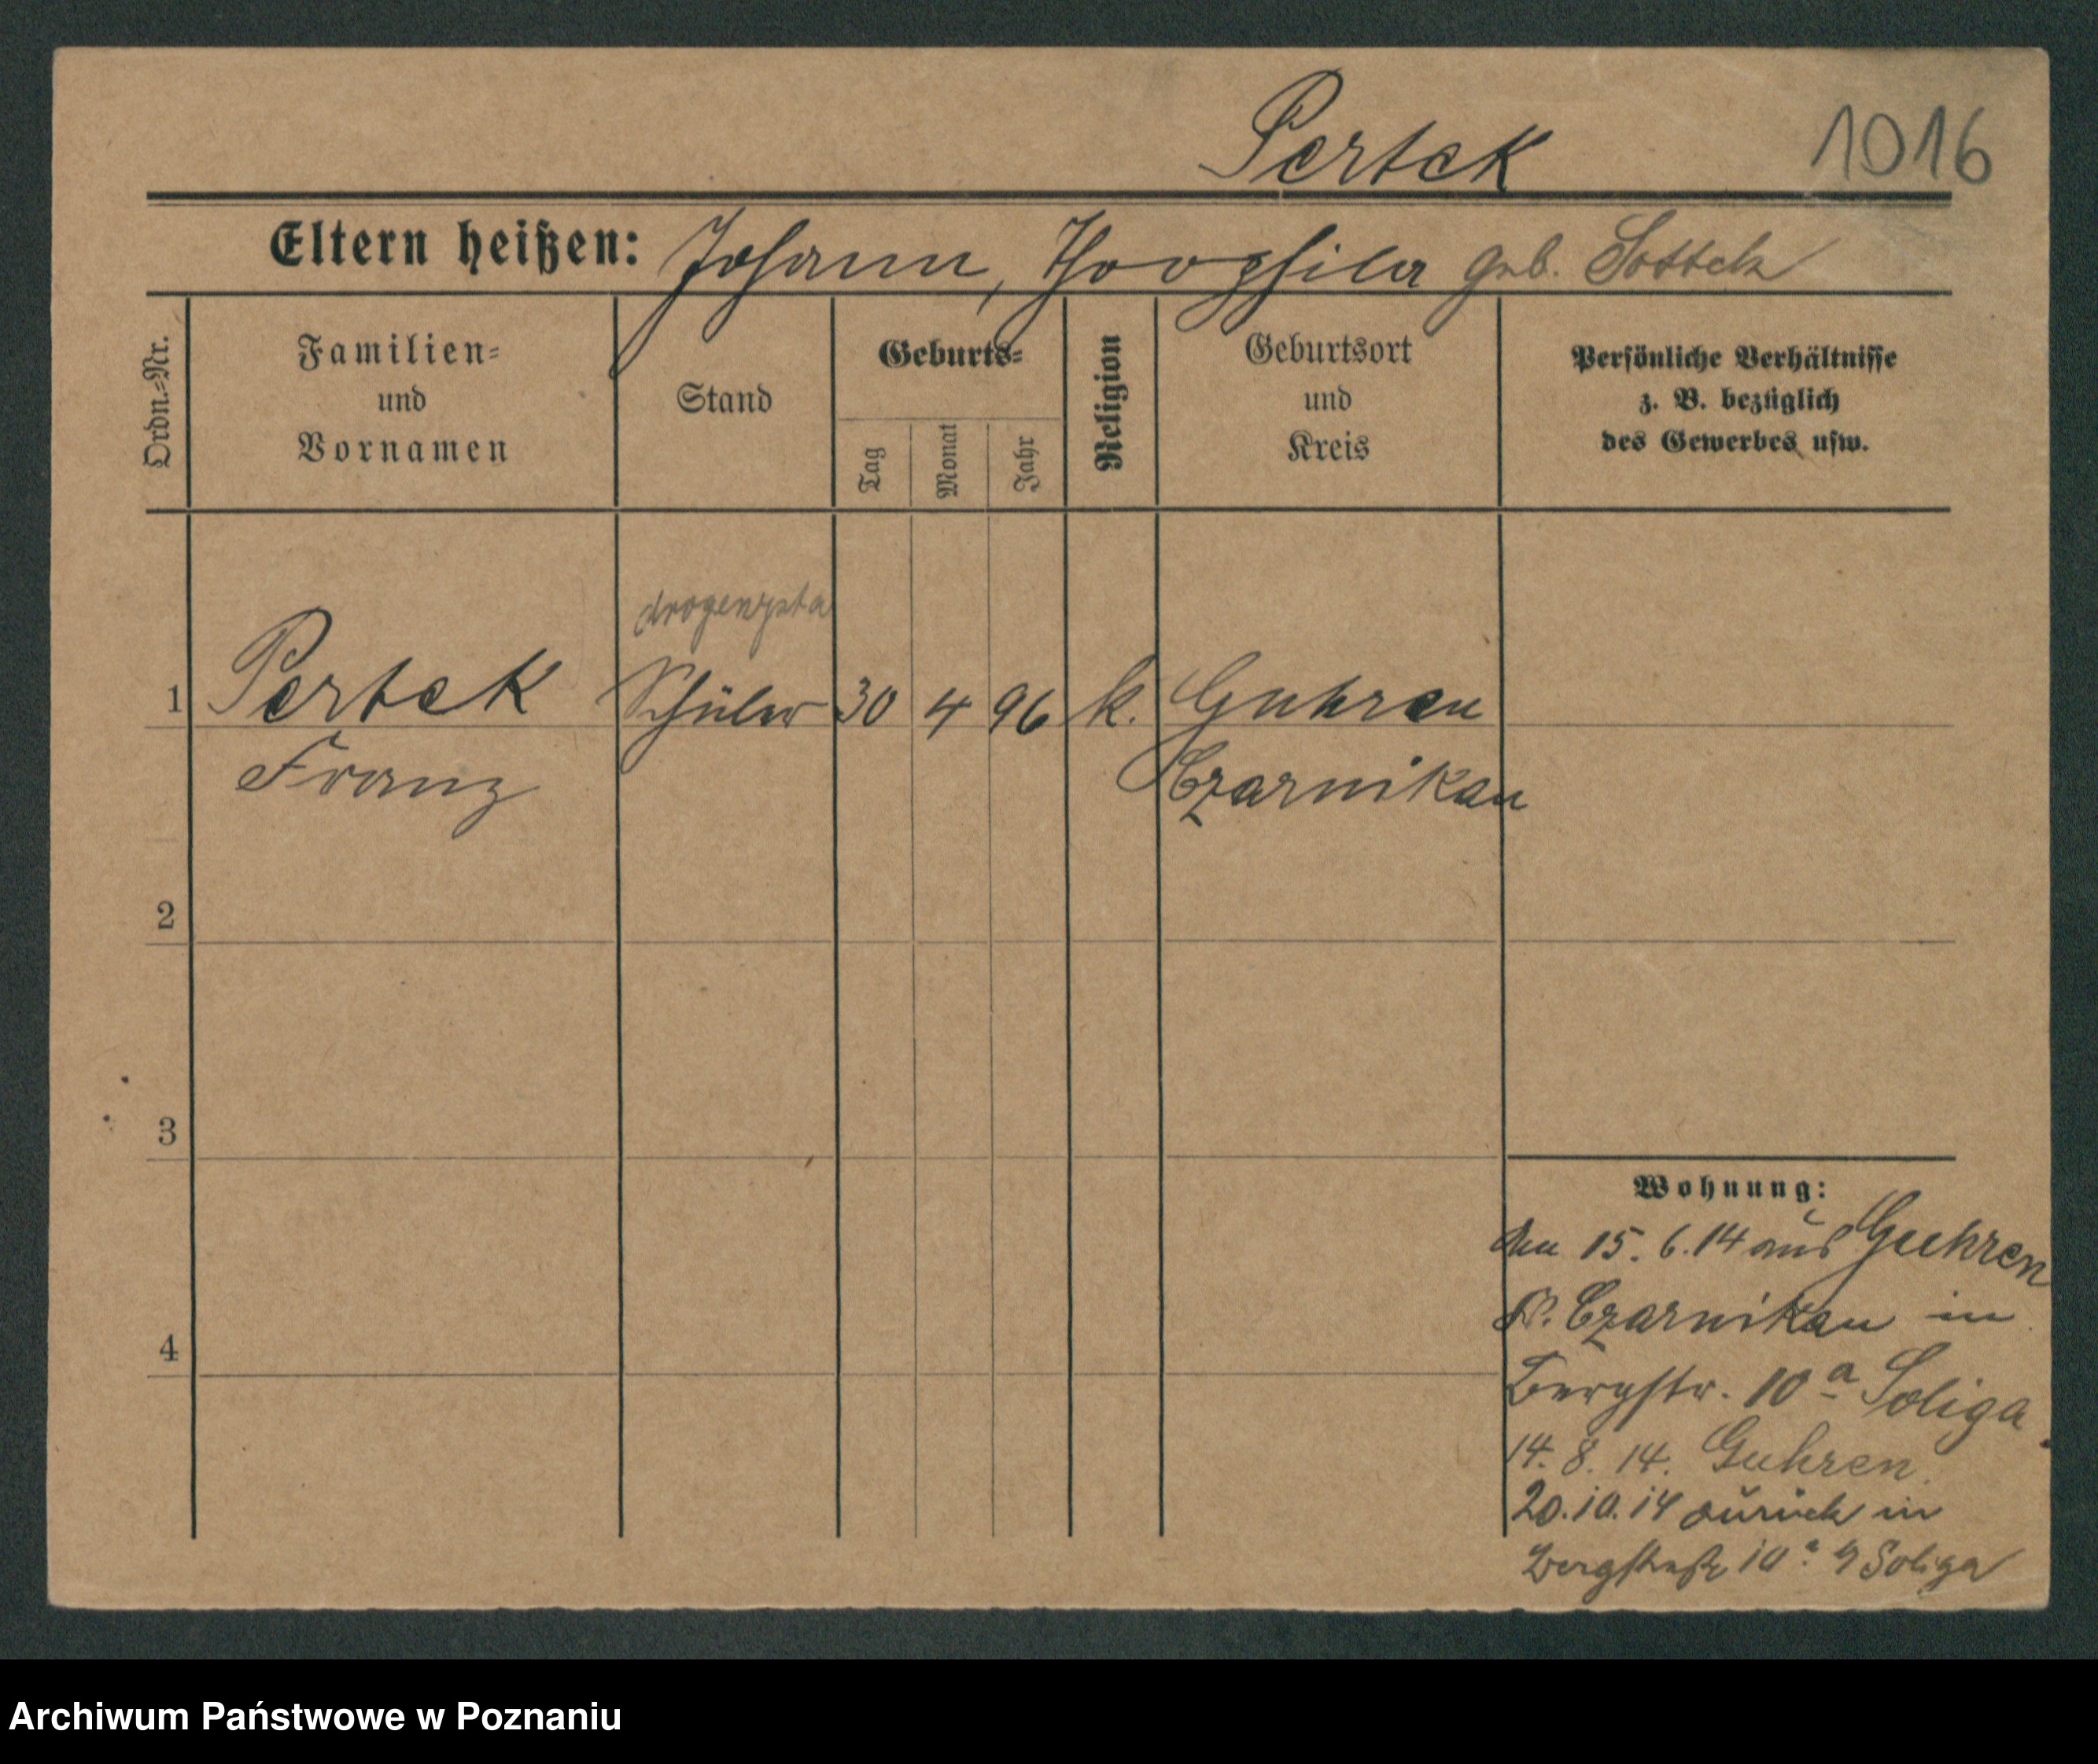 Pertek 1016
Eltern heißen: Johann, Theophila geb. Sottek
Ordn.-Nr.
Familien-
und
Vornamen
Stand
Geburts-
Tag
Monat
Jahr
Religion
Geburtsort
und
Kreis
Persönliche Verhältnisse
z. B. bezüglich
des Gewerbes usw.
drogerzysta
1 Pertek Schüler 30 4 96 k. Guhren
Franz Czarnikau
2
3
4
Wohnung:
den 15. 6. 14 aus Guhren
Kr. Czarnikau in
Bergstr. 10a Soliga
14. 8. 14. Guhren.
20.10.14 zurück in
Bergstraße 10a Soliga
Archiwum Państwowe w Poznaniu